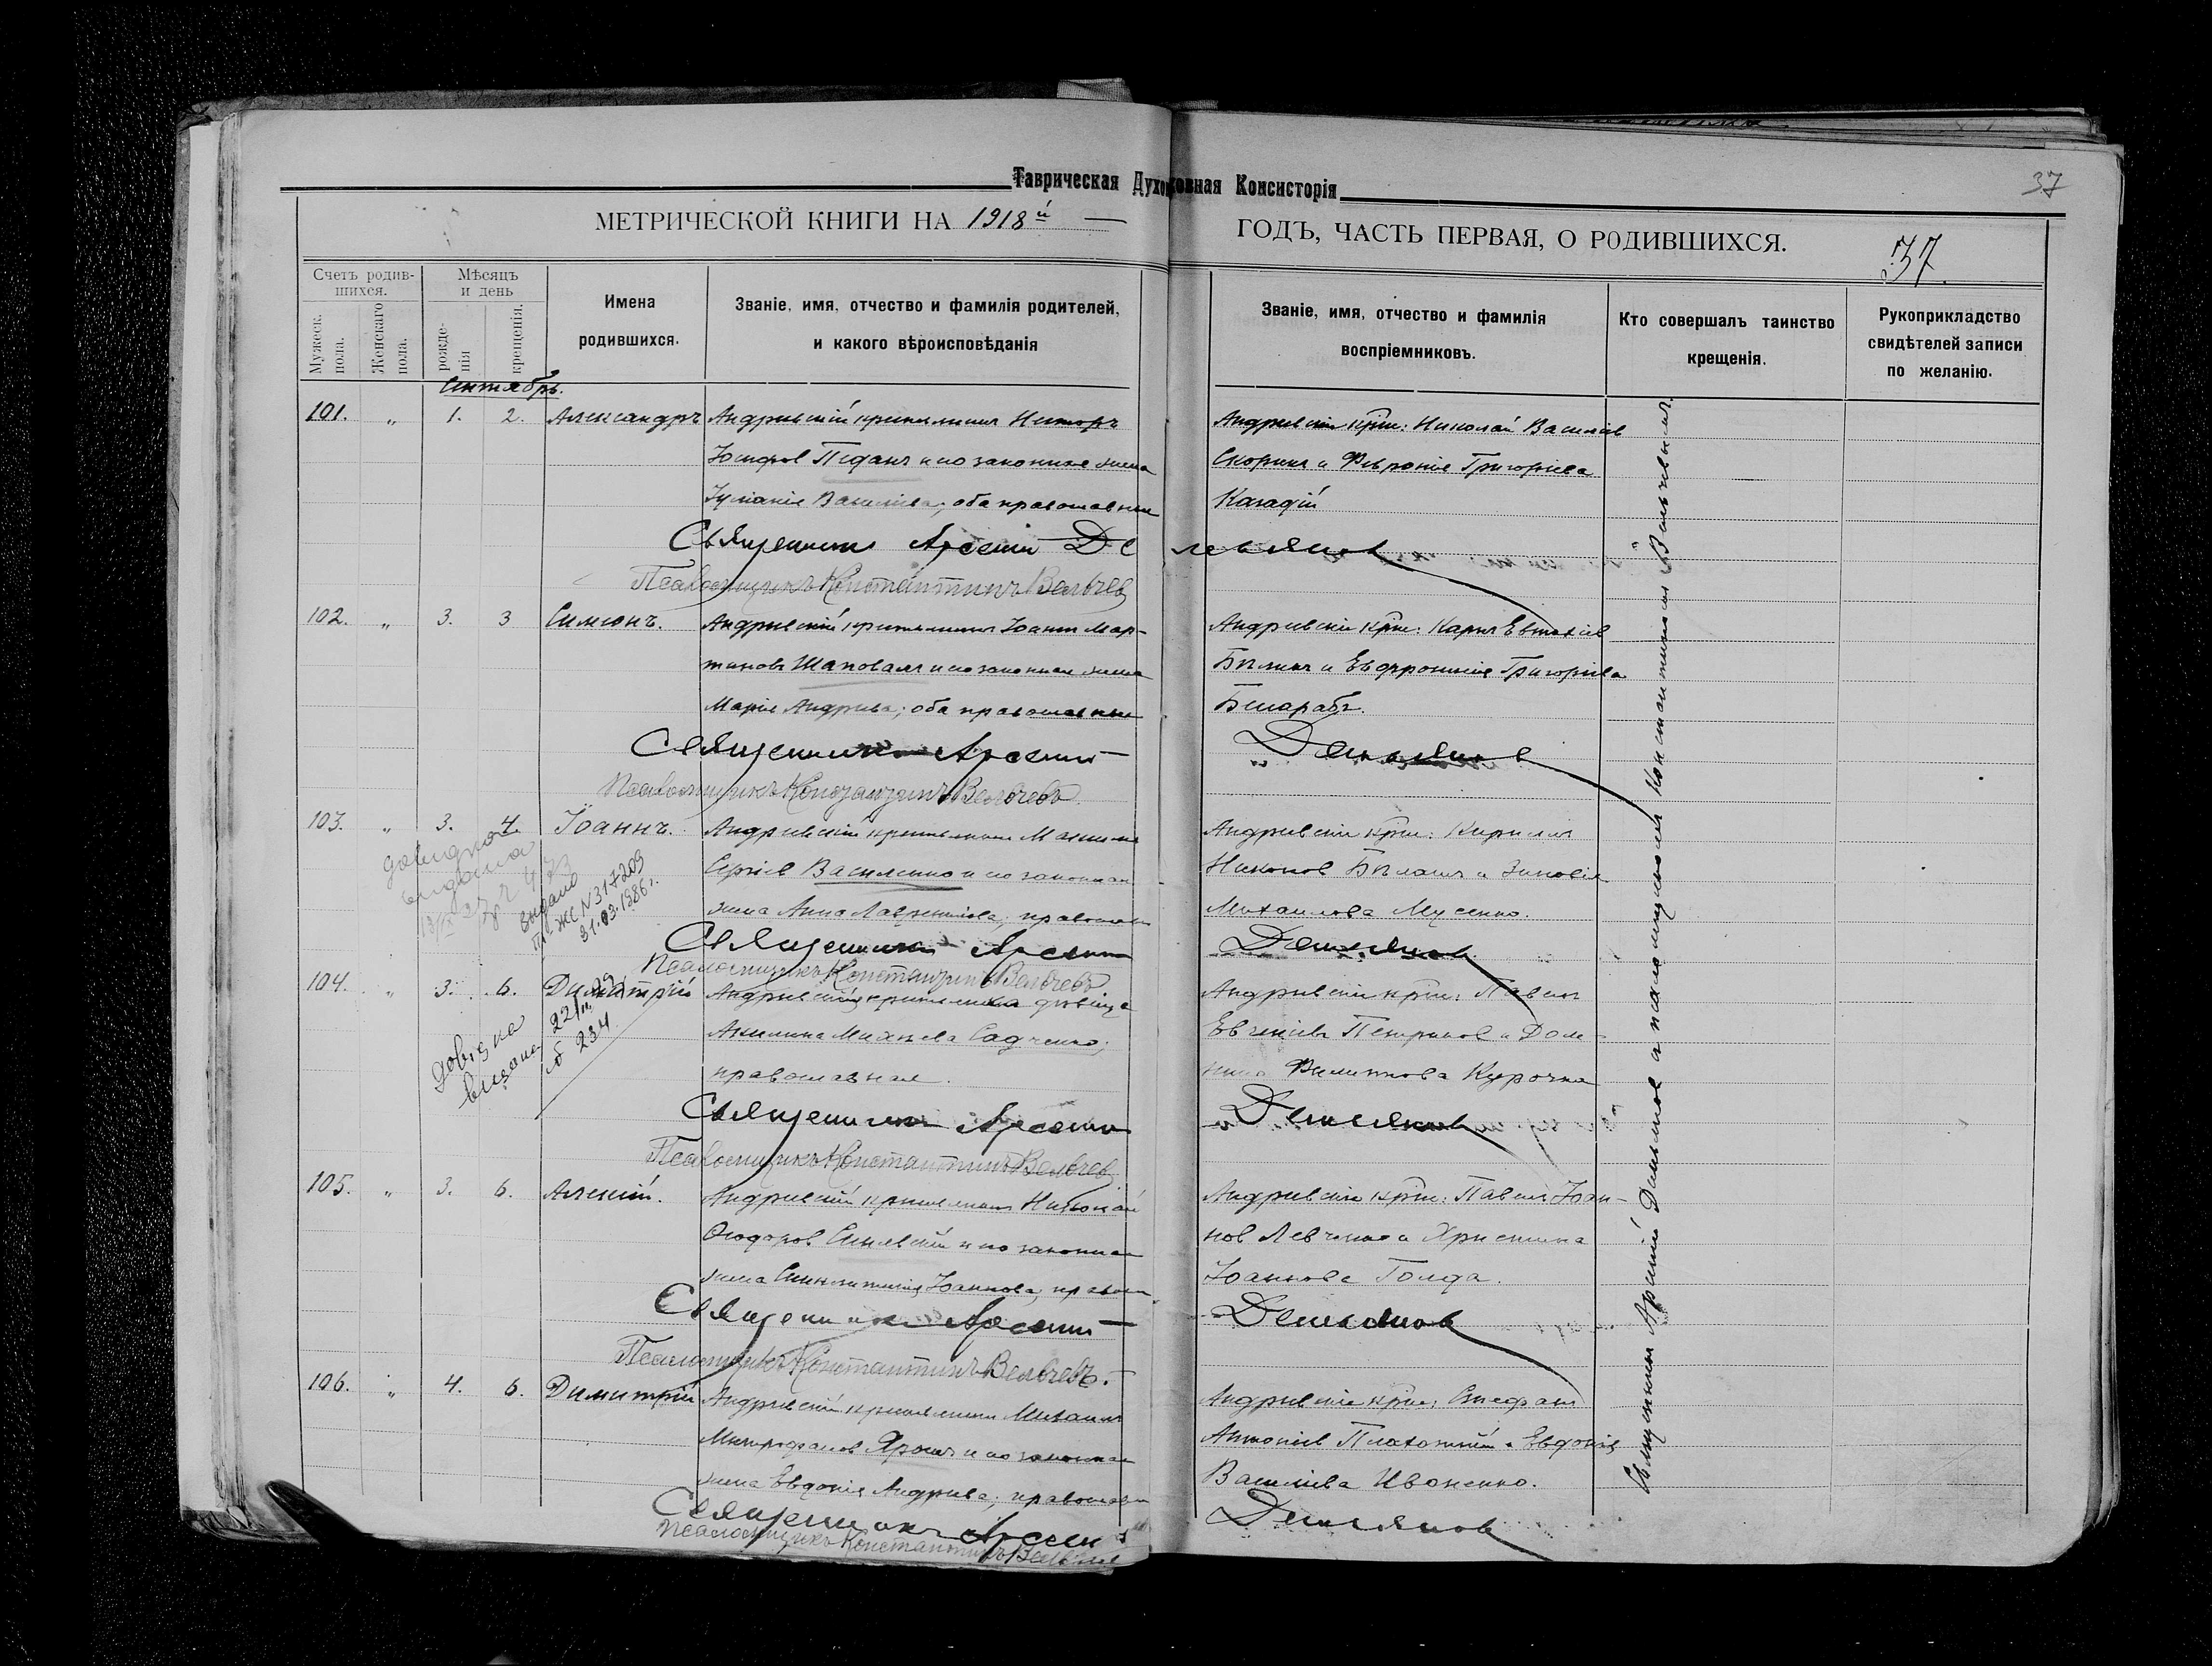 Таврическая Духовная Консисторія
37
МЕТРИЧЕСКОЙ КНИГИ НА 1918й ГОДЪ, ЧАСТЬ ПЕРВАЯ, О РОДИВШИХСЯ.
37.
Счетъ родив-
шихся.
Мужеск. пола.
Женскаго пола.
Мѣсяцъ
и день
рожде-
нія
крещенія.
Имена
родившихся.
Званіе, имя, отчество и фамилія родителей,
и какого вѣроисповѣданія
Званіе, имя, отчество и фамилія
воспріемниковъ.
Кто совершалъ таинство
крещенія.
Рукоприкладство
свидѣтелей записи
по желанію.
Сентябрь.
101. " 1. 2. Александръ Андреевскій крестьянинъ Несторъ
Іосифов Педанъ и его законная жена
Іуліанія Васильева; оба православные
Андреевскіе крѣс: Николай Васильев
Скорик и Феvронія Григоріева
Священникъ Арсеній Демьянов
Псаломщикъ Константинъ Вельчев
102. " 3. 3 Симеонъ. Андреевскій крестьянинъ Іоаннъ Мар-
тинов Шаповалъ и его законная жена
Марія Андреева; оба православные
Андреевскіе крѣс: Карпъ Евтихіев
и Евфросинія Григоріева
Бесараб.
Священникъ Арсеній Демьянов
Псаломщикъ Константинъ Вельчевъ
103. " 3. 4. Іоаннъ. Андреевскій крестьянинъ
Сергіев Василенко и его законная
жена Анна Лаврентіева; православн
Андреевскіе крѣс: Кириллъ
Никонов Бѣлашъ и Зиновія
Михаилова Мусенко.
видано
№ 317209
31.03.1986г.
Священникъ Арсеній Демьянов
Псаломщикъ Константинъ Вельчевъ
104. " 3. 6. Димитрій Андреевская крестьянка дѣвица
Акилина Михеева Садченко;
православная.
Андреевскіе крѣс: Павелъ
Евгеніевъ Петриков и Дом-
Филиппова Курочка
довідка
видана
234
Священникъ Арсеній Демьянов
Псаломщикъ Константинъ Вельчев
105. " 3. 6. Алексій. Андреевскій крестьянинъ Николай
Ѳеодоров и его законная
жена Синклитикія Іоаннова; правосл.
Андреевскіе крѣс: Павелъ Іоан-
нов Левченко и Христина
Іоаннова Голда.
Священникъ Арсеній Демьянов
Псаломщикъ Константинъ Вельчевъ.
106. " 4. 6. Димитрій Андреевскій крестьянинъ Михаилъ
Митрофанов Ярошъ и его законная
жена Евдокія Андреева; православн
Андреевскіе крѣс: Стефанъ
Антоніев Плахотній и Евдокія
Васильева Ивоненко.
Священникъ Арсеній Демьянов
Псаломщикъ Константинъ Вельчев
Священникъ Арсеній Демьянов и псаломщикъ Константинъ Вельчевъ.